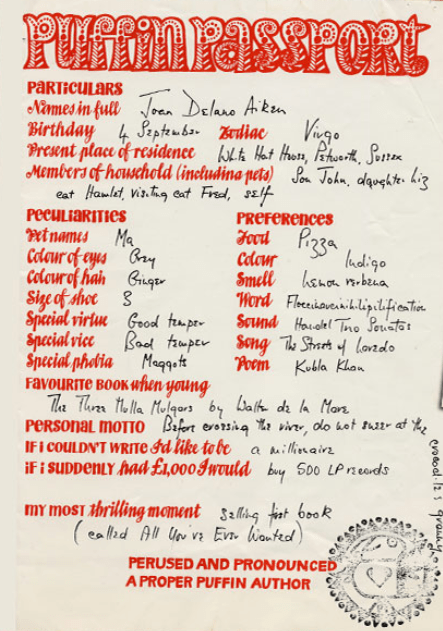 PUFFIN PASSPORT
PARTICULARS
Names in full Joan Delano Aiken
Birthday 4 September Zodiac Virgo
Present place of residence White Hart House, Petworth, Sussex
Members of household (including pets) Son John, daughter Liz
cat Hamlet, visiting cat Fred, self
PECULIARITIES
Pet names Ma
Colour of eyes Grey
Colour of hair Ginger
Size of shoe 3
Special virtue Good temper
Special vice Bad temper
Special phobia Maggots
PREFERENCES
Food Pizza
Colour Indigo
Smell Lemon verbena
Word Floccinaucinihilipilification
Sound Handel Trio Sonatas
Song The Streets of Laredo
Poem Kubla Khan
FAVOURITE BOOK when young
The Three Mulla Mulgars by Walter de la Mare
PERSONAL MOTTO Before crossing the river, do not sneer at the
crocodile's
IF I COULDN'T WRITE I'd like to be a millionaire
IF I SUDDENLY had £1,000 I would buy 500 LP records
MY MOST thrilling moment selling first book
(called All You've Ever Wanted)
PERUSED AND PRONOUNCED
A PROPER PUFFIN AUTHOR